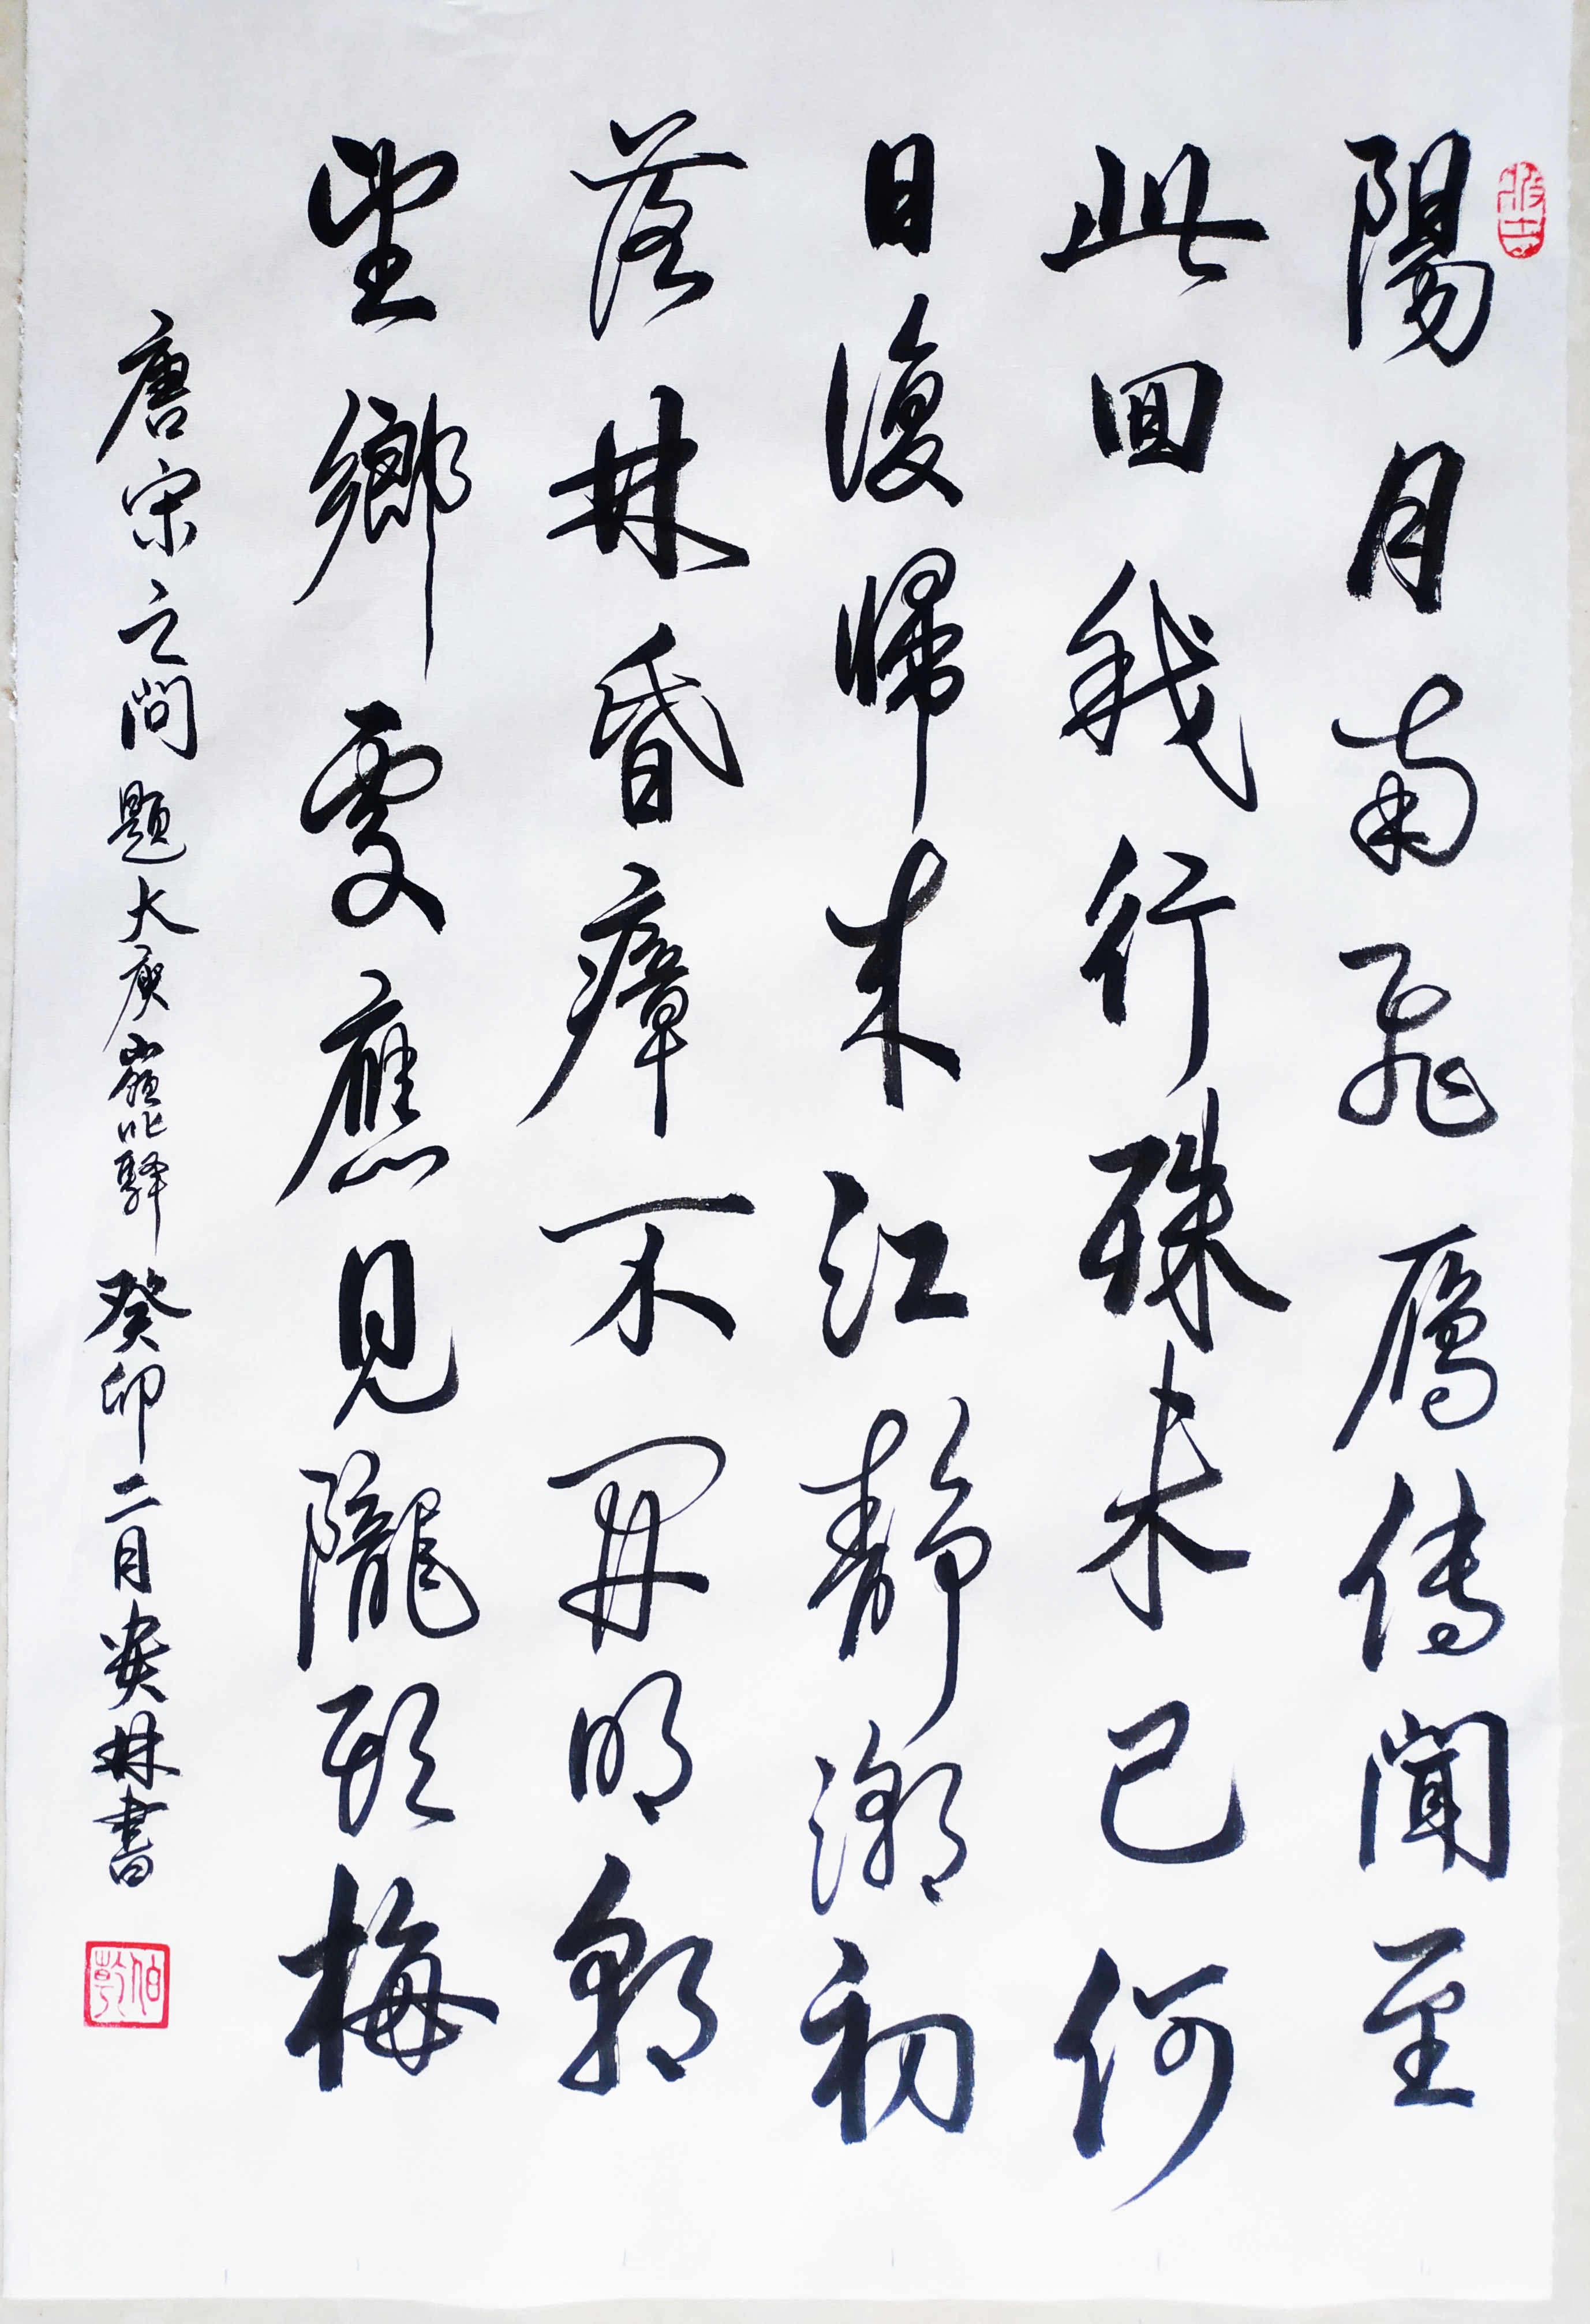 陽月南飛鴈傳聞至
此回我行殊未已何
日復歸來江靜潮初
落林昏瘴不開明朝
望鄉處應見隴頭梅
唐宋之問題大庾嶺北驛 癸卯二月奕林書